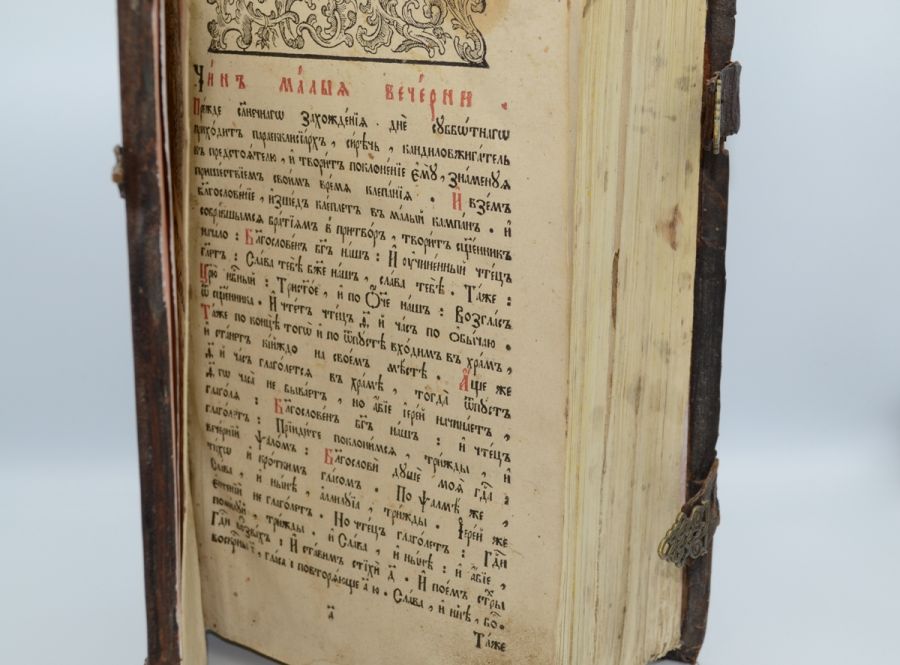 Чи́нъ ма́лыѧ вече́рни .
Пре́жде со́лнечнагѡ захожде́нїѧ . днѐ сꙋббѡ́тнагѡ
прихо́дитъ параекклисїа́рхъ , си́рѣчь , кандиловжига́тель
къ предстоѧ́телю , и҆ твори́тъ поклоне́нїе є҆мꙋ̀ , зна́менꙋѧ
прише́ствїемъ свои́мъ вре́мѧ клепа́нїѧ . И҆ взе́мъ
благослове́нїе , и҆зше́дъ кле́плетъ въ ма́лый кампа́нъ . и҆
собра́вшымсѧ бра́тїѧмъ в̾ притво́ръ , твори́тъ сщ҃е́нникъ
нача́ло : Благослове́нъ бг҃ъ на́шъ : И҆ ᲂу҆чине́нный чте́цъ
гл҃етъ : Сла́ва тебѣ̀ бж҃е на́шъ , сла́ва тебѣ̀ . Та́же :
Цр҃ю̀ нбⷭ҇ный : Трист҃о́е , и҆ по Ѻ҆́ч҃е на́шъ : Возгла́съ
ѿ сщ҃е́нника . И҆ чте́тъ чте́цъ д҃ , й ча́съ по ѻ҆бы́чаю .
Та́же по концѣ̀ тогѡ̀ и҆ по ѿпꙋ́стѣ вхо́димъ въ хра́мъ ,
и҆ ста́нетъ кі́йждо на свое́мъ мѣ́стѣ . А҆́ще же
д҃ , й ча́съ глаго́летсѧ въ хра́мѣ , тогда̀ ѿпꙋ́стъ
д҃ гѡ часа̀ не быва́етъ , но а҆́бїе і҆ере́й начина́етъ ,
глаго́лѧ : Благослове́нъ бг҃ъ на́шъ : и҆ чте́цъ
глаго́летъ : Прїиди́те поклони́мсѧ , три́жды , и҆
вече́рнїй ѱало́мъ : Благословѝ дꙋшѐ моѧ̀ гдⷭ҇а :
ти́химъ и҆ кро́ткимъ гла́сомъ . По ѱалмѣ́ же ,
Сла́ва , и҆ ны́нѣ , а҆ллилꙋ́їа , три́жды . І҆ере́й же
є҆ктенїѝ не глаго́летъ . Но чте́цъ глаго́летъ : Гдⷭ҇и
поми́лꙋй , три́жды . и҆ Сла́ва , и҆ ны́нѣ : и҆ а҆́бїе ,
Гдⷭ҇и воззва́хъ : И҆ ста́вимъ стїхѝ д҃ . И҆ пое́мъ стⷯры
воскрⷭ҇ны гла́са : повторѧ́юще а҃ ю . Сла́ва , и҆ ны́нѣ , бг҃о-
а҃
Та́же